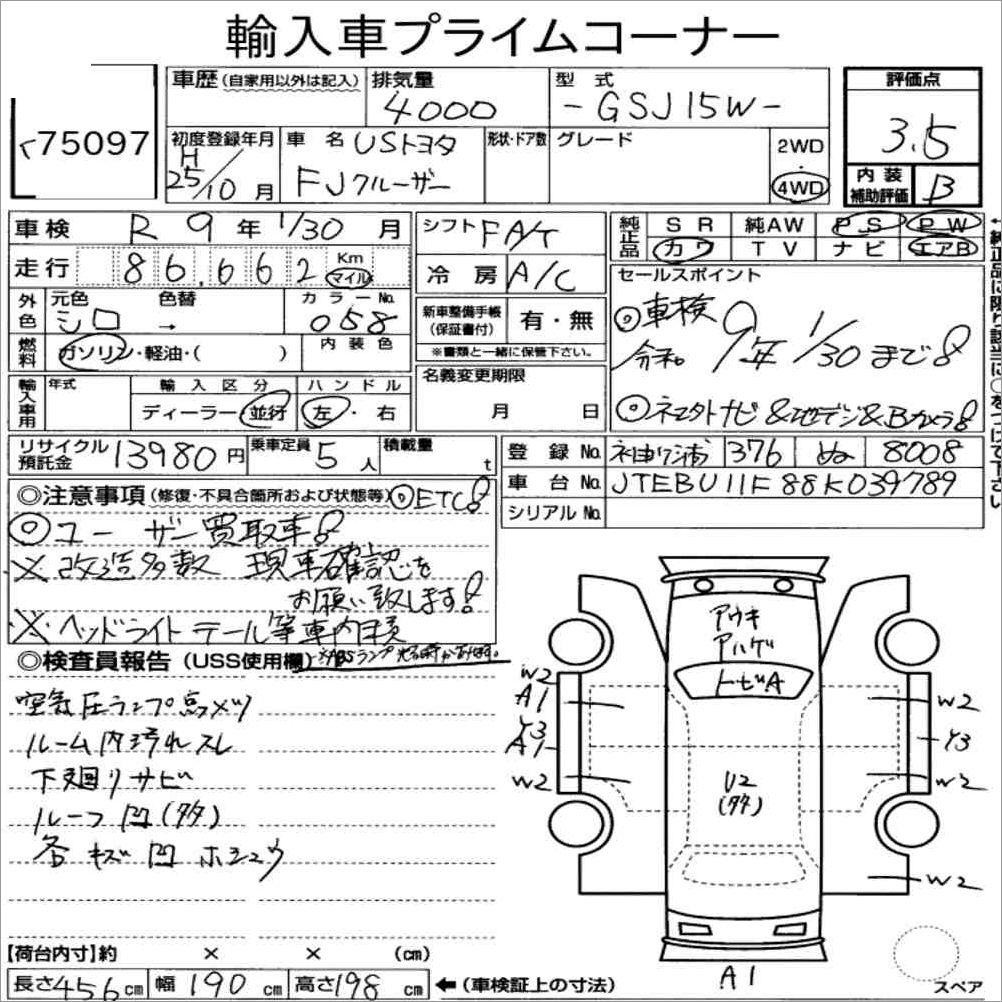 輸入車プライムコーナー
75097
車歴 (自家用以外は記入) 排気量 4000 型式 -GSJ15W- 評価点 3.5
初度登録年月 H25/10月 車名 USトヨタ FJクルーザー 形状・ドア数 グレード 2WD 4WD 内装補助評価 B
車検 R 9 年 1/30 月 シフト FA/T 純正品 SR 純AW PS PW
カワ TV ナビ エアB
走行 86,662 Km マイル 冷房 A/C セールスポイント
外色 元色 シロ 色替 → カラーNo. 058 新車整備手帳 (保証書付) 有・無
◎車検 令和。9年 1/30まで
燃料 ガソリン・軽油・( ) 内装色 ※書類と一緒に保管下さい。
輸入車用 年式 輸入区分 ハンドル 名義変更期限
ディーラー・並行 左・右 月 日
◎社外ナビ&地デジ&Bカメラ
リサイクル預託金 13980円 乗車定員 5人 積載量 t 登録No. 376 ぬ 8008
車台No. JTEBU11F88K039789
シリアルNo.
◎注意事項 (修復・不具合箇所および状態等) ◎ETC
◎ユーザー買取車
※改造多数 現車確認を
お願い致します
※ヘッドライト テール等車内積
◎検査員報告 (USS使用欄) ※ABSランプ
空気圧ランプ点メツ
ルーム内汚れスレ
下廻りサビ
ルーフ凹(多)
各キズ凹ホシュウ
アウキ
アハゲ
トビA
W2
A1
Y3
A1
W2
U2
(多)
W2
Y3
W2
W2
A1
スペア
【荷台内寸】約 × × (cm)
長さ456cm 幅190cm 高さ198cm ←(車検証上の寸法)